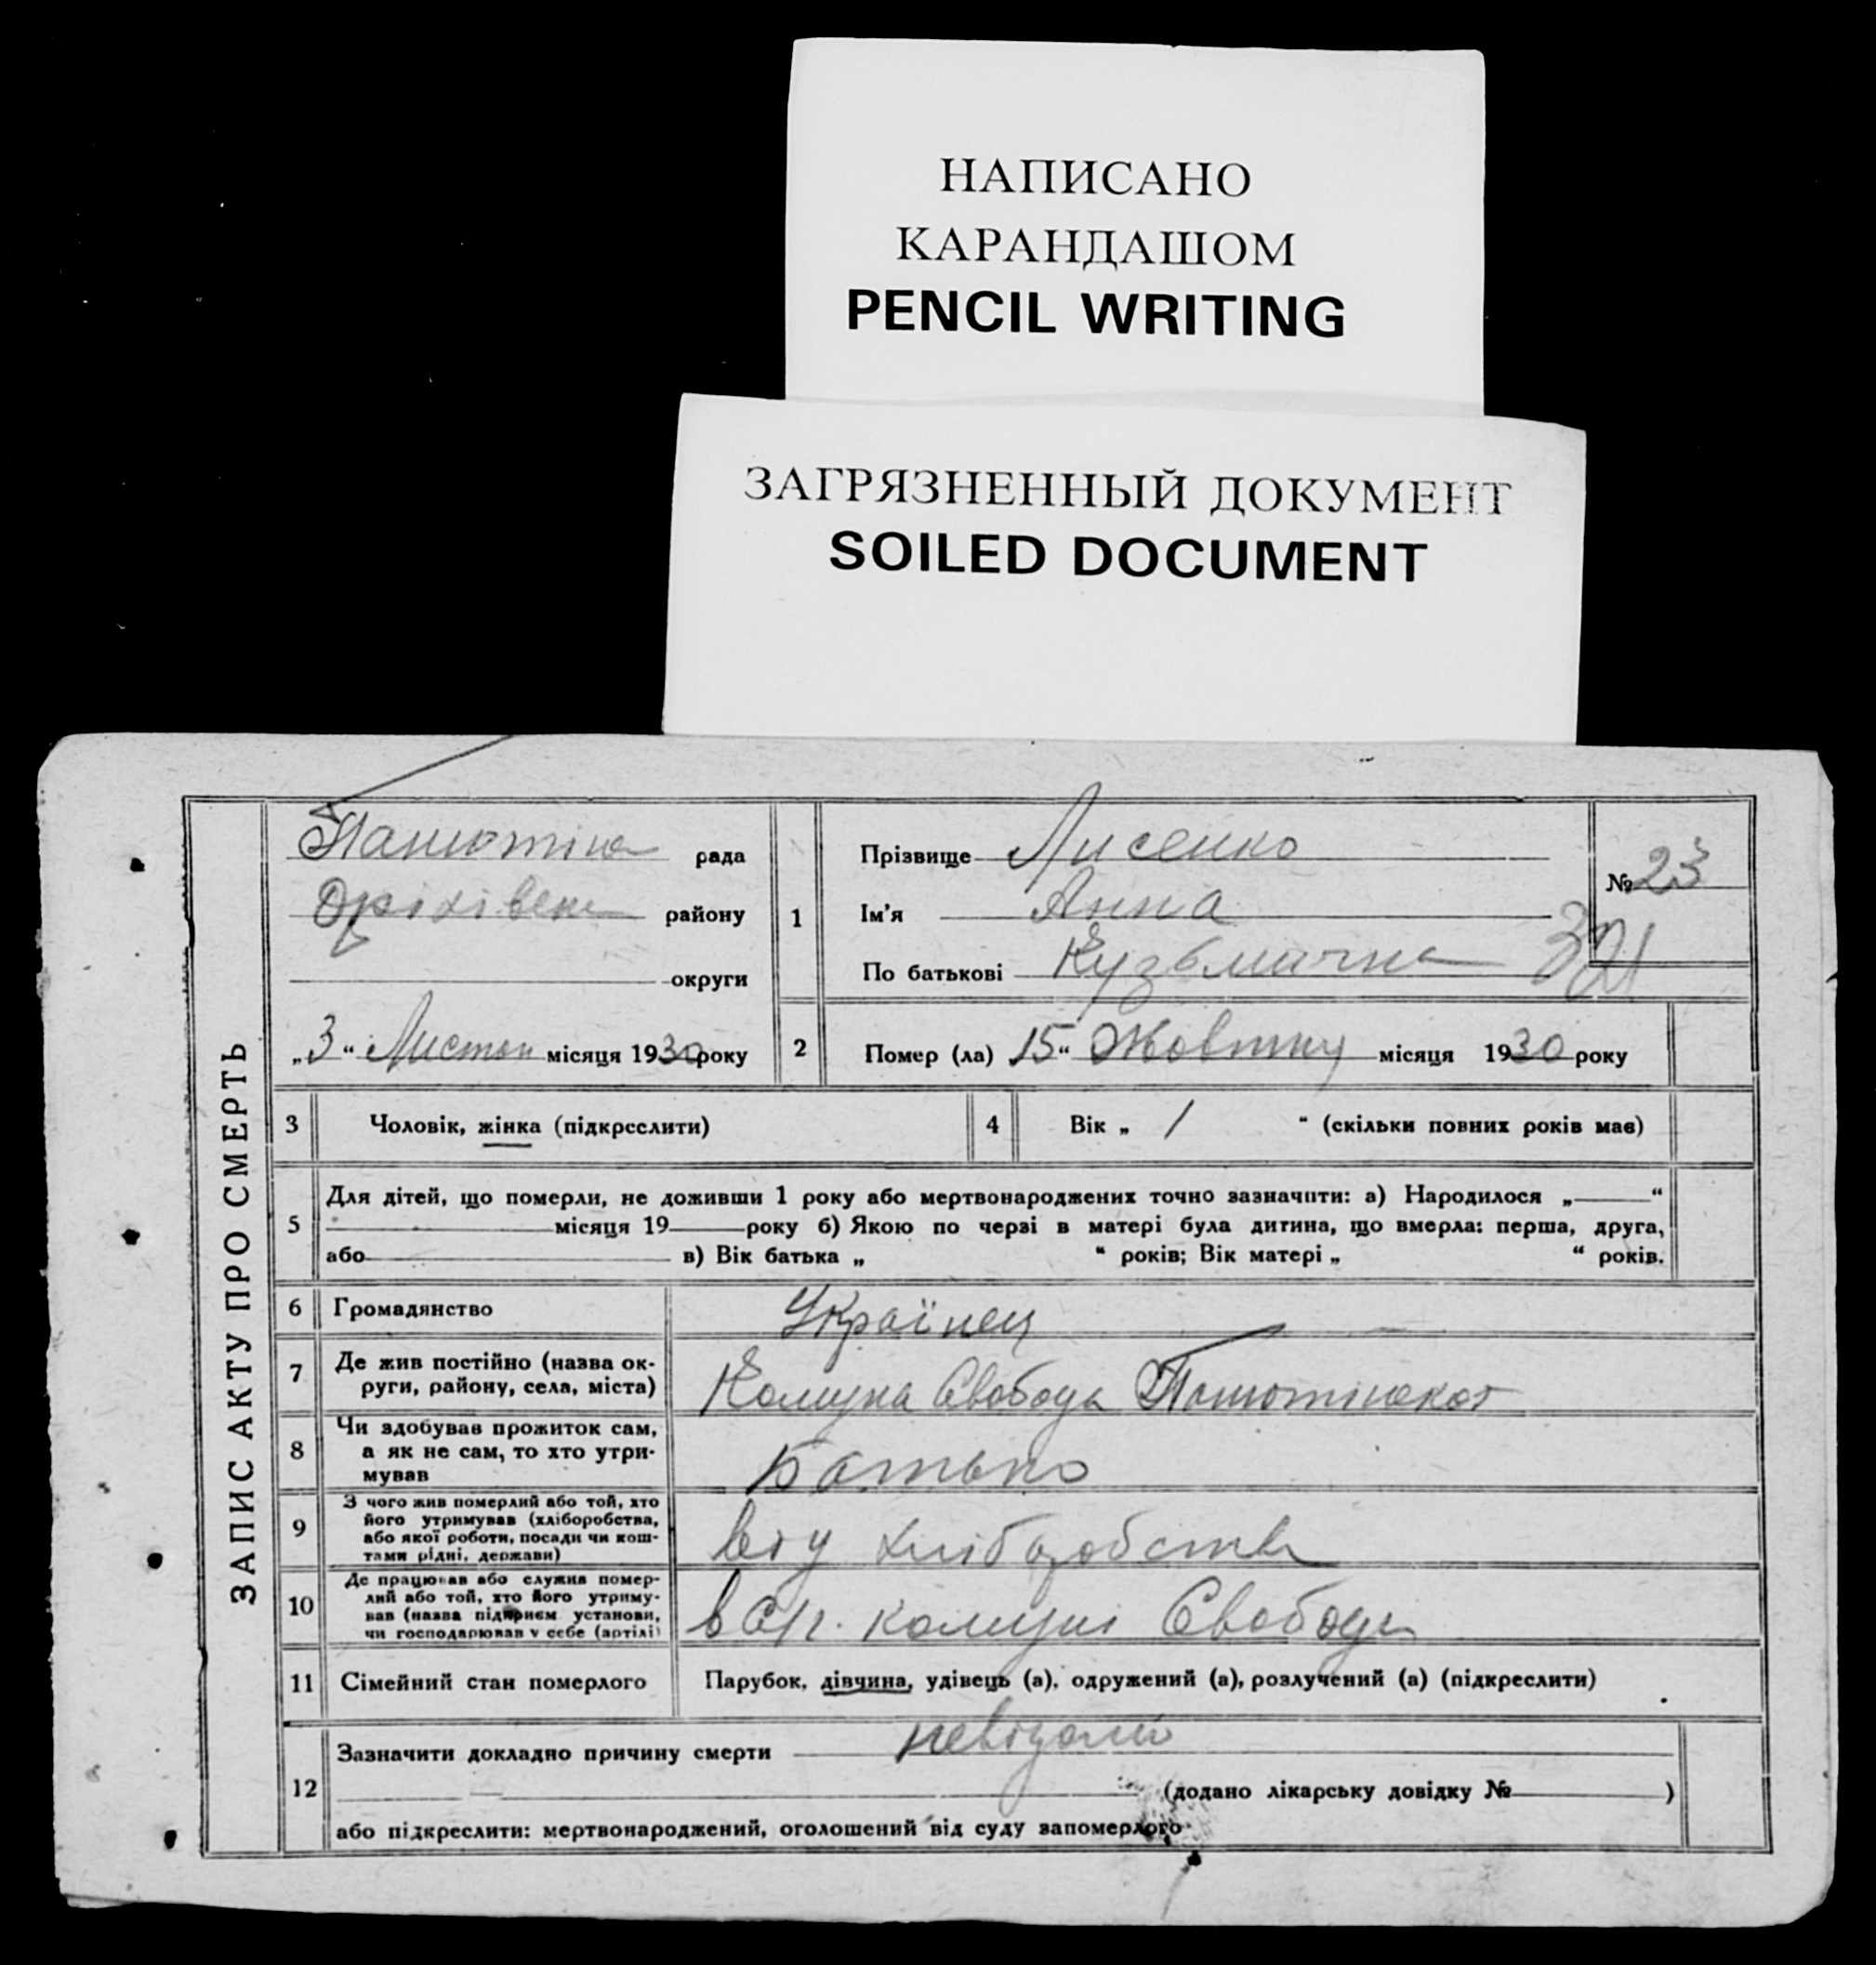 НАПИСАНО
КАРАНДАШОМ
PENCIL WRITING
ЗАГРЯЗНЕННЫЙ ДОКУМЕНТ
SOILED DOCUMENT
ЗАПИС АКТУ ПРО СМЕРТЬ
рада
району
округи
„3“ Листоп місяця 1930 року
1
Прізвище Лисенко
Ім'я Анна
По батькові Кузьмична
№ 23
321
2 Помер (ла) „15“ Жовтня місяця 1930 року
3 Чоловік, жінка (підкреслити)
4 Вік „ 1 “ (скільки повних років має)
5 Для дітей, що померли, не доживши 1 року або мертвонароджених точно зазначити: а) Народилося „ “
місяця 19 року б) Якою по черзі в матері була дитина, що вмерла: перша, друга,
або в) Вік батька „ “ років; Вік матері „ “ років.
6 Громадянство Українец
7 Де жив постійно (назва ок-
руги, району, села, міста) Комуна Свобода
8 Чи здобував прожиток сам,
а як не сам, то хто утри-
мував Батько
9 З чого жив померлий або той, хто
його утримував (хліборобства,
або якої роботи, посади чи кош-
тами рідні, держави) від хліборобства
10 Де працював або служив помер-
лий або той, хто його утриму-
вав (назва підприєм установи,
чи господарював у себе (артілі) в с/г. комуні Свобода
11 Сімейний стан померлого Парубок, дівчина, удівець (а), одружений (а), розлучений (а) (підкреслити)
12 Зазначити докладно причину смерти невідомо
(додано лікарську довідку № )
або підкреслити: мертвонароджений, оголошений від суду запомерлого